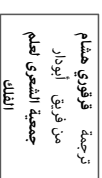 ترجمة قرقوري هشام
من فريق أبودار
جمعية الشعرى لعلم
الفلك